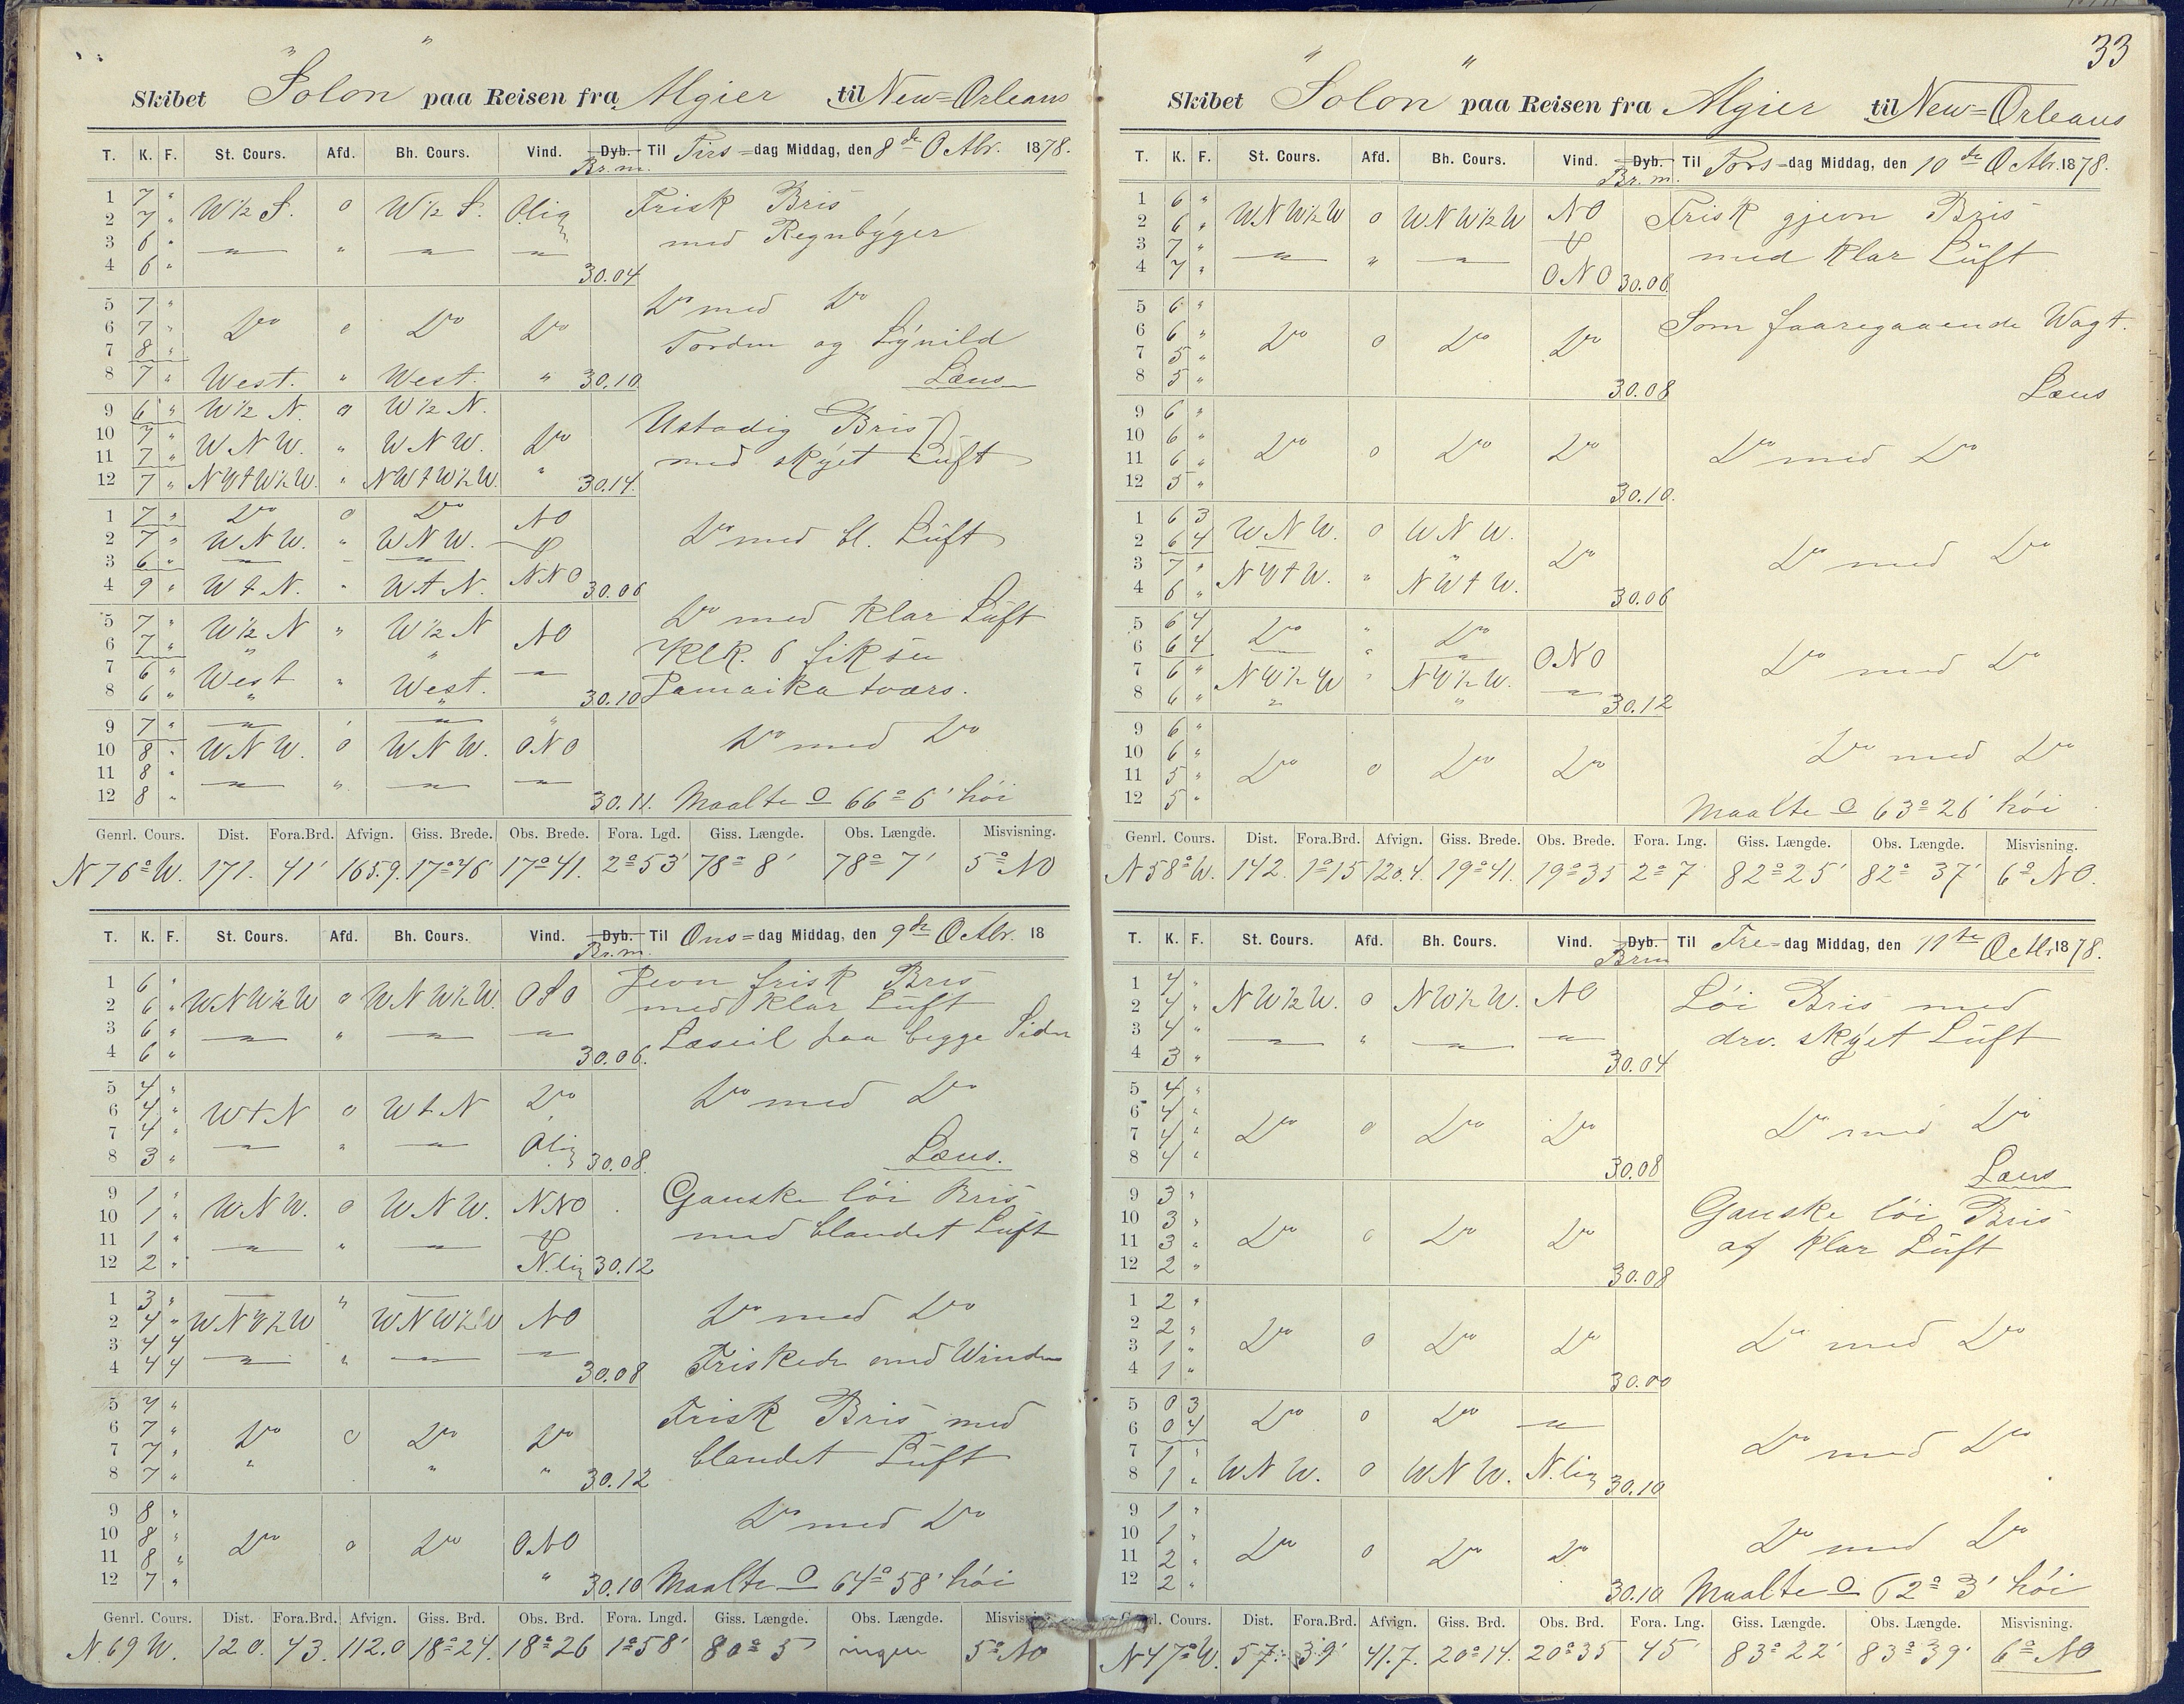 Skibet "Solon" paa Reisen fra Algier til New=Orleans
T. K. F. St. Cours. Afd. Bh. Cours. Vind. Dyb. Br.m. Til Tirs=dag Middag, den 8de Octbr. 1878.
1 7 " Frisk Bris
2 7 " W½S. 0 W½S. Ölig
3 6 " — " — — med Regnbÿger
4 6 " 30.04
5 7 " Do med Do
6 7 " Do 0 Do Do
7 8 " Torden og Lÿnild
8 7 " West. " West. " 30.10 Læns
9 6 " W½N. 0 W½N.
10 7 " WNW. " WNW. Do Ustadig Bris
11 7 " med skÿet Lüft
12 7 " NWtW½W. " NWtW½W. " 30.14.
1 7 " Do 0 Do NO
2 7 " WNW. " WNW. Do med bl. Lüft
3 6 " — — —
4 9 " WtN. " WtN. NNO 30.06
5 7 " W½N " W½N NO Do med klar Lüft
6 7 " " " Klk. 6 fik en
7 6 " West " West. —
8 6 " " " 30.10 Jamaika tværs.
9 7 " — " — "
10 8 " WNW. 0 WNW. ONO Do med Do
11 8 " — " — —
12 8 " 30.11. Maalte O 66° 6' höi
Genrl. Cours. Dist. Fora.Brd. Afvign. Giss. Brede. Obs. Brede. Fora. Lgd. Giss. Længde. Obs. Længde. Misvisning.
N76°W. 171. 41' 165.9. 17°46' 17°41. 2°53' 78°8' 78°7' 5° NO
T. K. F. St. Cours. Afd. Bh. Cours. Vind. Dyb. Br.m. Til Ons=dag Middag, den 9de Octbr. 18
1 6 " Jevn frisk Bris
2 6 " WNW½W 0 WNW½W. OSO med klar Lüft
3 6 " — " — — Læseil paa begge Sider
4 6 " 30.06.
5 4 "
6 4 " WtN 0 WtN Do Do med Do
7 4 " — " —
8 3 " Ölig 30.08. Læns.
9 1 " Ganske löi Bris
10 1 " WNW. 0 WNW. NNO
11 1 " — " — med blandet Lüft
12 2 " N.lig 30.12
1 3 " — " —
2 4 " WNW½W WNW½W NO Do med Do
3 4 4 — " — —
4 4 4 30.08 Friskede med Winden
5 7 " Frisk Bris med
6 7 " Do 0 Do Do
7 7 " blandet Lüft
8 7 " " " " 30.12
9 8 " Do med Do
10 8 " Do 0 Do ONO
11 8 "
12 7 " " 30.10 Maalte O 64° 58' höi
Genrl. Cours. Dist. Fora.Brd. Afvign. Giss. Brd. Obs. Brd. Fora. Lngd. Giss. Længde. Obs. Længde. Misvisning
N.69 W. 120. 43. 112.0 18°24. 18°26 1°58' 80°5' ingen 5° NO
33
Skibet "Solon" paa Reisen fra Algier til New=Orleans
T. K. F. St. Cours. Afd. Bh. Cours. Vind. Dyb. Br.m. Til Tors=dag Middag, den 10de Octbr. 1878.
1 6 " Frisk gjevn Bris
2 6 " WNW½W 0 WNW½W NO
3 7 " — " — med klar Lüft
4 7 " ONO 30.06.
5 6 " Som faaregaaende Wagt.
6 6 " Do 0 Do Do
7 5 "
8 5 " 30.08 Læns
9 6 "
10 6 " Do 0 Do Do Do med Do
11 6 "
12 5 " 30.10.
1 6 3 WNW. 0 WNW.
2 6 4 Do Do med Do
3 7 " NWtW. " NWtW.
4 6 " 30.06
5 6 4 Do " Do
6 6 4 — " — ONO Do med Do
7 6 " NW½W " NW½W.
8 6 " " " — 30.12
9 6 " Do med Do
10 6 "
11 5 " Do 0 Do Do
12 5 " Maalte O 63° 26' höi
Genrl. Cours. Dist. Fora.Brd. Afvign. Giss. Brede. Obs. Brede. Fora. Lng. Giss. Længde. Obs. Længde. Misvisning.
N58°W. 142. 1°15 120.4. 19°41. 19°35 2°7 82°25' 82° 37' 6° NO.
T. K. F. St. Cours. Afd. Bh. Cours. Vind. Dyb. Brm Til Fre=dag Middag, den 11te Octbr. 1878.
1 4 " Löi Bris med
2 4 " NW½W. 0 NW½W. NO
3 4 " — " — — drv. skÿet Lüft
4 3 " 30.04
5 4 "
6 4 " Do 0 Do Do Do med Do
7 4 "
8 4 " 30.08 Læns
9 3 " Ganske löi Bris
10 3 " Do 0 Do Do
11 3 " af klar Lüft
12 2 " 30.08
1 2 "
2 2 " Do 0 Do Do Do med Do
3 1 "
4 1 " 30.00
5 0 3 Do 0 Do —
6 0 4 Do med Do
7 1 "
8 1 " WNW. 0 WNW. N.lig 30.10
9 1 "
10 1 " Do 0 Do Do Do med Do
11 2 "
12 2 " 30.10 Maalte O 62° 3' höi
Genrl. Cours. Dist. Fora.Brd. Afvign. Giss. Brd. Obs. Brd. Fora. Lng. Giss. Længde. Obs. Længde. Misvisning.
N47°W. 57. 39' 41.7. 20°14. 20°35 45' 83°22' 83°39' 6° NO